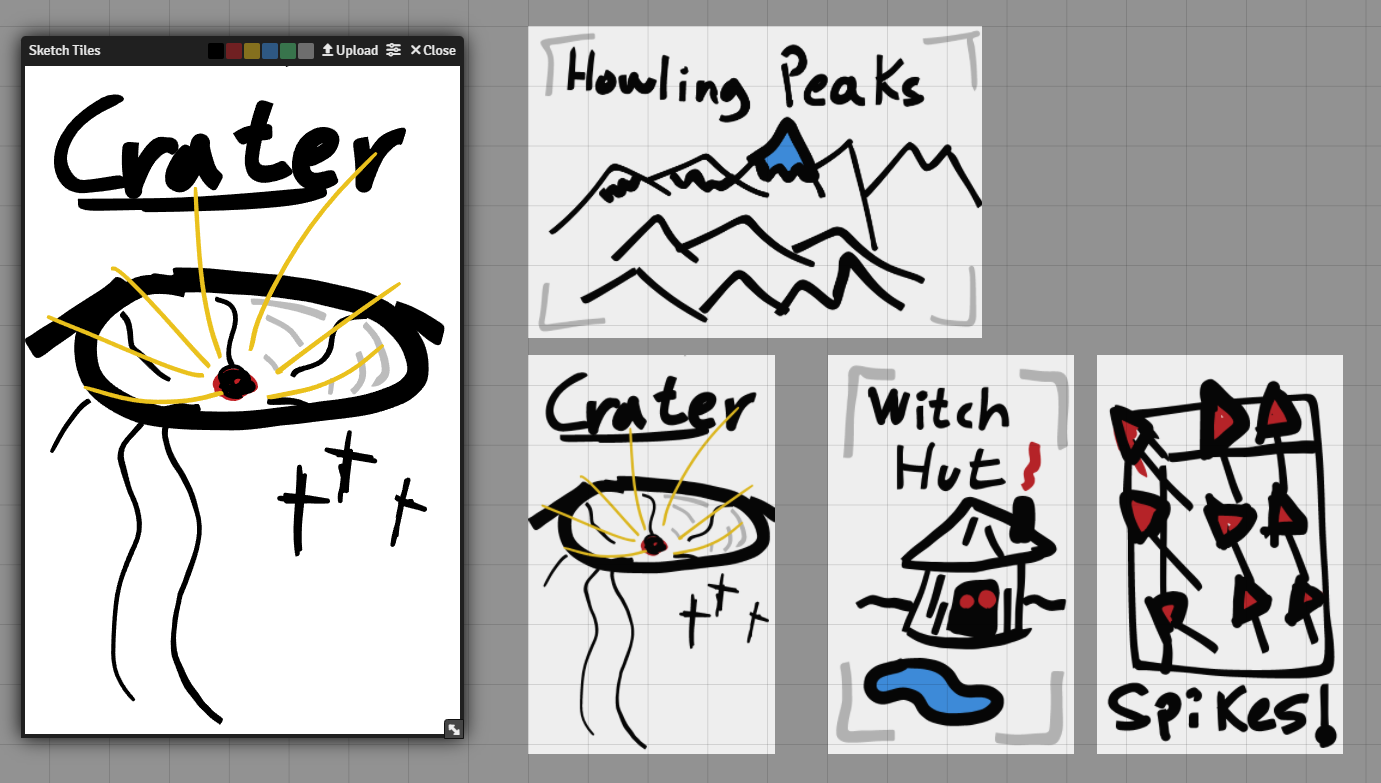 Sketch Tiles
Upload
Close
Crater
Howling Peaks
Crater
Witch
Hut
Spikes!